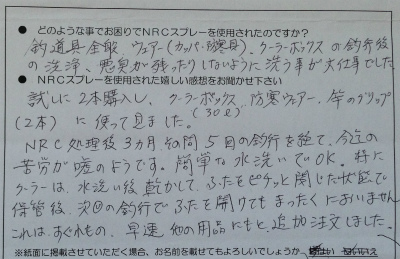 ● どのような事でお困りでNRCスプレーを使用されたのですか?
釣道具全般 ウェアー(カッパ・防寒具)、クーラーボックスの釣行後
の洗浄、悪臭が残ったりしないように洗う事が大仕事でした。
● NRCスプレーを使用された嬉しい感想をお聞かせ下さい
試しに2本購入し、クーラーボックス、防寒ウェアー、竿のグリップ
(30ℓ)
(2本)に使って見ました。
NRC処理後3カ月その間5回の釣行を経て、今迄の
苦労が嘘のようです。簡単な水洗いでOK。特に
クーラーは、水洗い後乾かして、ふたをピチッと閉じた状態で
保管後、次回の釣行でふたを開けてもまったくにおいません
これは、すぐれもの、早速他の用品にもと、追加注文しました。
※紙面に掲載させていただく場合、お名前を載せてもよろしいでしょうか